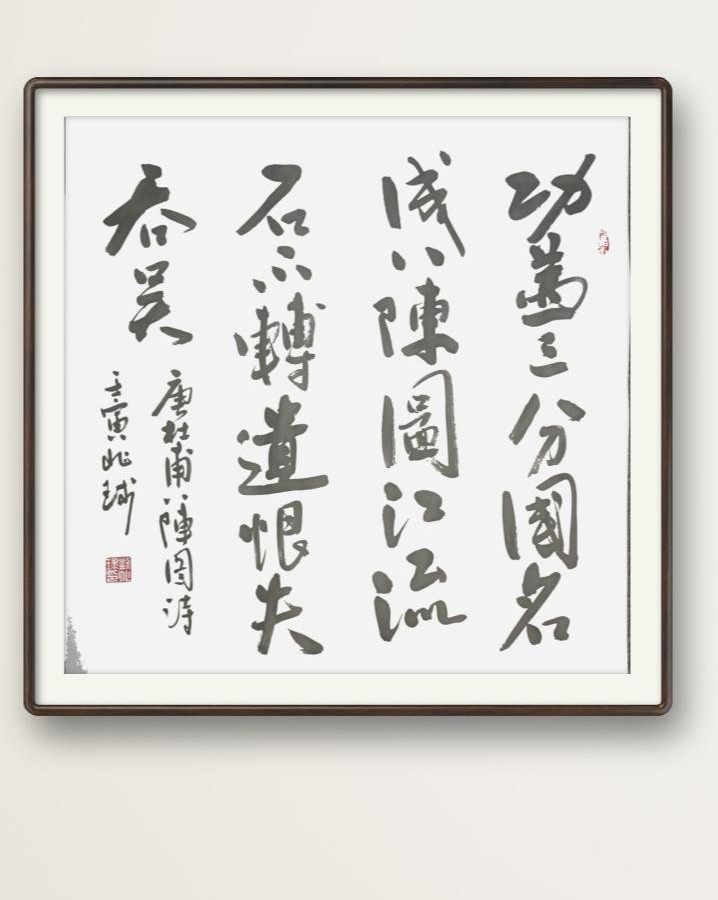 功蓋三分國名
成八陳圖江流
石不轉遺恨失
吞吳
唐杜甫八陳图詩
壬寅兆球